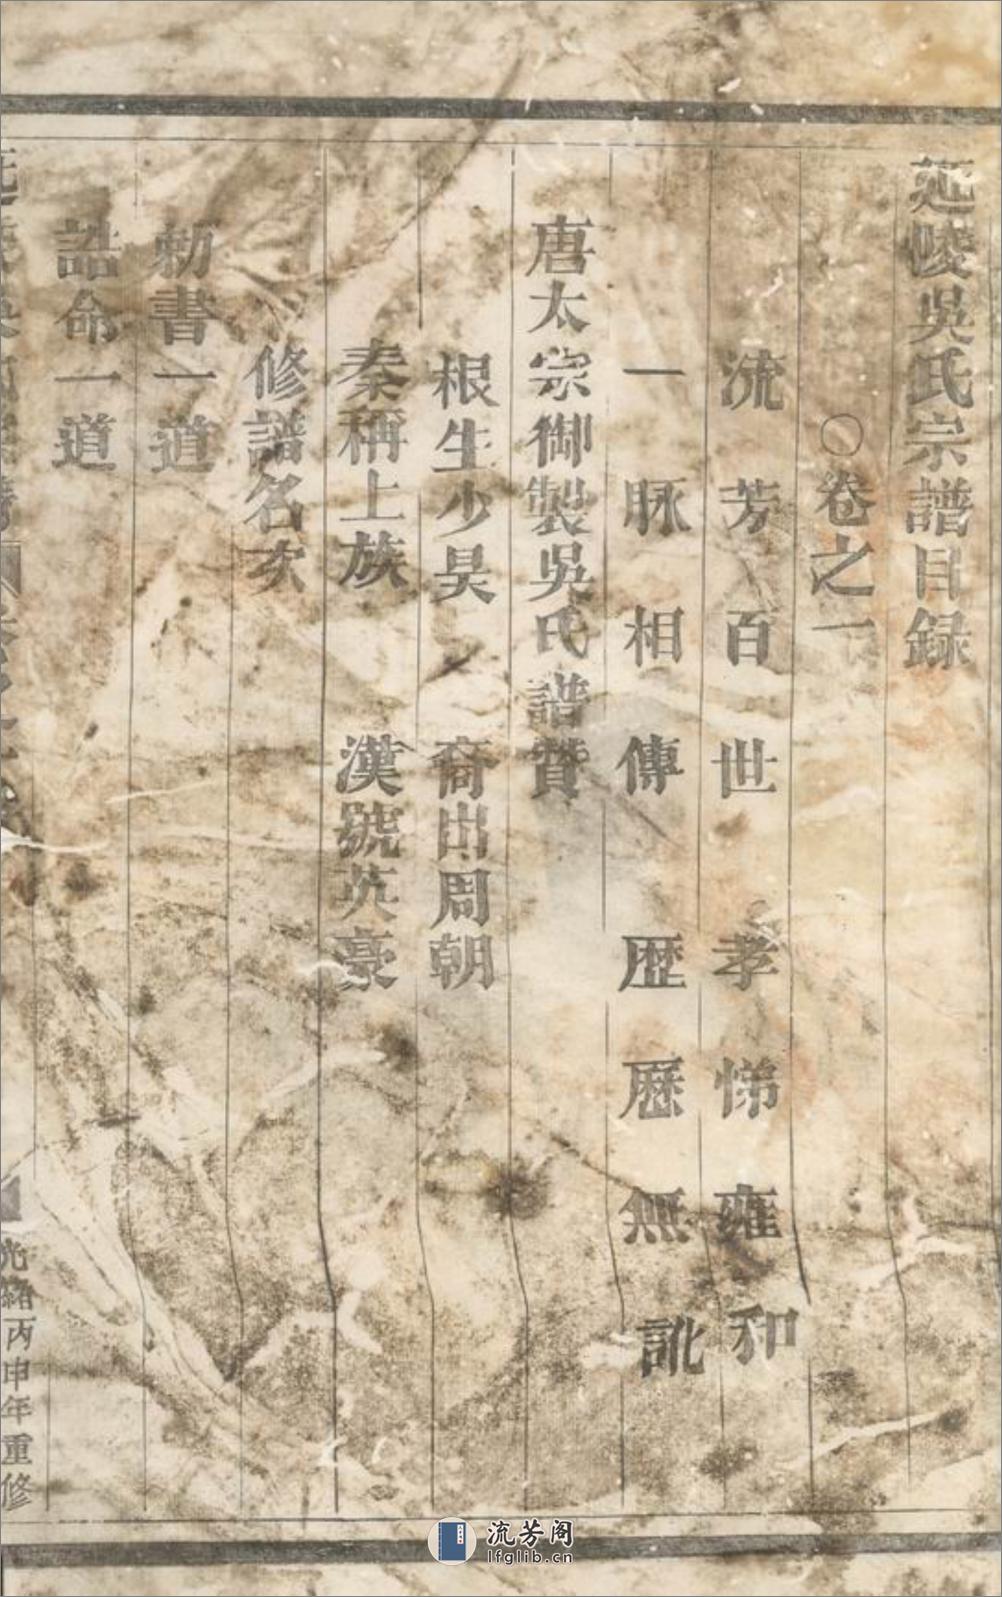 延陵吳氏宗譜目録
〇卷之一
流芳百世孝悌雍和
一脉相傳歴歴無訛
唐太宗御製吳氏譜賛
根生少昊 裔出周朝
秦稱上族 漢號英豪
修譜名次
勅書一道
誥命一道
光緒丙申年重修
流芳阁
lfglib.cn